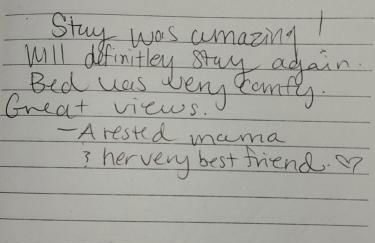 Stay was amazing!
Will definitley stay again.
Bed was very comfy.
Great views.
- A rested mama
& her very best friend. ♡